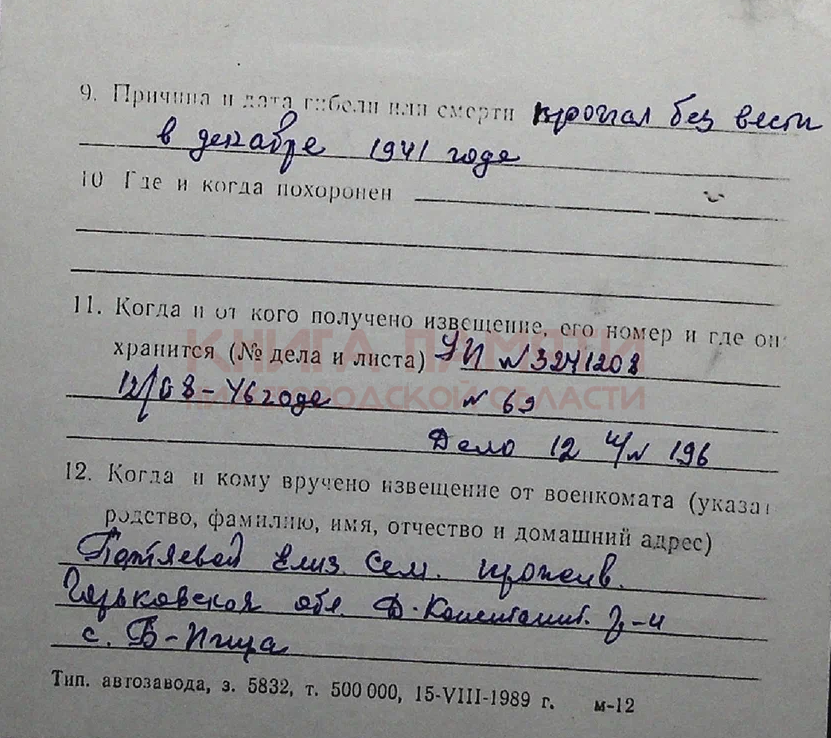 9. Причина и дата гибели или смерти пропал без вести
в декабре 1941 года
10 Где и когда похоронен
11. Когда и от кого получено извещение, его номер и где он
хранится (№ дела и листа) УП N 3241208
КНИГА ПАМЯТИ
12/08-46 годе N 69
НИЖЕГОРОДСКОЙ ОБЛАСТИ
Дело 12 N 196
12. Когда и кому вручено извещение от военкомата (указат
родство, фамилию, имя, отчество и домашний адрес)
Елиз. Сем. прожив.
Горьковская обл. Д-Констант. р-н
с. Б-Пица
Тип. автозавода, з. 5832, т. 500 000, 15-VIII-1989 г. м-12